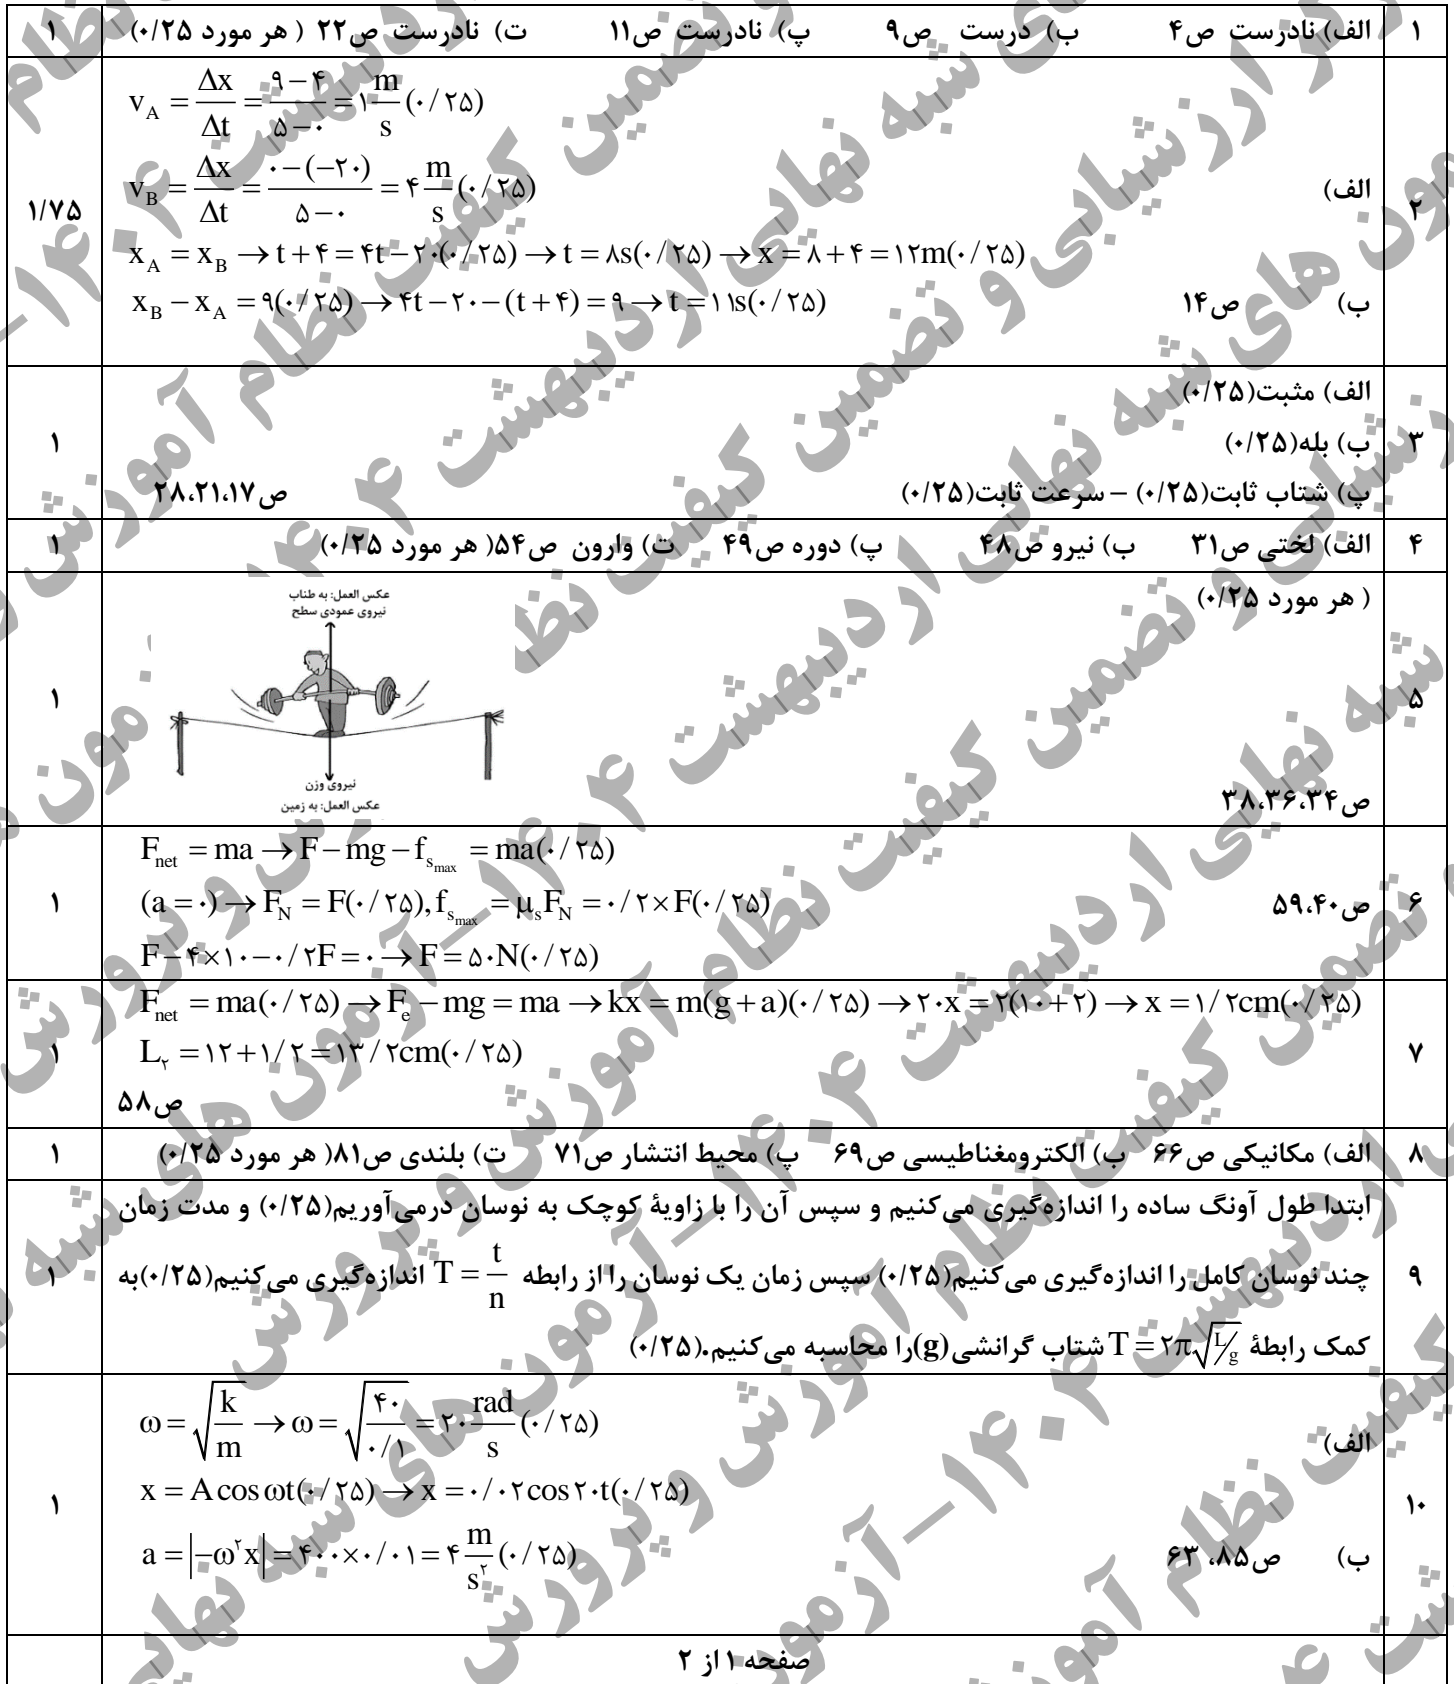 ۱ الف) نادرست ص۴ ب) درست ص۹ پ) نادرست ص۱۱ ت) نادرست ص۲۲ ( هر مورد ۰/۲۵) ۱
v_A = Δx/Δt = (۹−۴)/(۵−۰) = ۱ m/s (۰/۲۵)
v_B = Δx/Δt = (۰−(−۲۰))/(۵−۰) = ۴ m/s (۰/۲۵)
الف)
۲ ۱/۷۵
x_A = x_B → t+۴ = ۴t−۲۰(۰/۲۵) → t = ۸s(۰/۲۵) → x = ۸+۴ = ۱۲m(۰/۲۵)
x_B − x_A = ۹(۰/۲۵) → ۴t−۲۰−(t+۴) = ۹ → t = ۱۱s(۰/۲۵)
ب) ص۱۴
الف) مثبت(۰/۲۵)
۳ ب) بله(۰/۲۵) ۱
پ) شتاب ثابت(۰/۲۵) – سرعت ثابت(۰/۲۵) ص۲۸،۲۱،۱۷
۴ الف) لختی ص۳۱ ب) نیرو ص۴۸ پ) دوره ص۴۹ ت) وارون ص۵۴( هر مورد ۰/۲۵) ۱
( هر مورد ۰/۲۵)
عکس العمل: به طناب
نیروی عمودی سطح
۵ ۱
نیروی وزن
عکس العمل: به زمین
ص۳۸،۳۶،۳۴
F_net = ma → F − mg − f_s_max = ma(۰/۲۵)
۶ (a = ۰) → F_N = F(۰/۲۵), f_s_max = μ_s F_N = ۰/۲×F(۰/۲۵) ص۵۹،۴۰ ۱
F−۴×۱۰−۰/۲F = ۰ → F = ۵۰N(۰/۲۵)
F_net = ma(۰/۲۵) → F_e − mg = ma → kx = m(g+a)(۰/۲۵) → ۲۰x = ۲(۱۰+۲) → x = ۱/۲cm(۰/۲۵)
۷ L_۲ = ۱۲+۱/۲ = ۱۳/۲cm(۰/۲۵) ۱
ص۵۸
۸ الف) مکانیکی ص۶۶ ب) الکترومغناطیسی ص۶۹ پ) محیط انتشار ص۷۱ ت) بلندی ص۸۱( هر مورد ۰/۲۵) ۱
ابتدا طول آونگ ساده را اندازه‌گیری می‌کنیم و سپس آن را با زاویۀ کوچک به نوسان درمی‌آوریم(۰/۲۵) و مدت زمان
۹ چند نوسان کامل را اندازه‌گیری می‌کنیم(۰/۲۵) سپس زمان یک نوسان را از رابطه T = t/n اندازه‌گیری می‌کنیم(۰/۲۵)به ۱
کمک رابطۀ T = ۲π√(L/g) شتاب گرانشی(g)را محاسبه می‌کنیم.(۰/۲۵)
ω = √(k/m) → ω = √(۴۰/۰/۱) = ۲۰ rad/s (۰/۲۵)
الف)
۱۰ x = A cos ωt(۰/۲۵) → x = ۰/۰۲cos۲۰t(۰/۲۵) ۱
a = |−ω^۲x| = ۴۰۰×۰/۰۱ = ۴ m/s^۲ (۰/۲۵)
ب) ص۸۵، ۶۳
صفحه ۱ از ۲